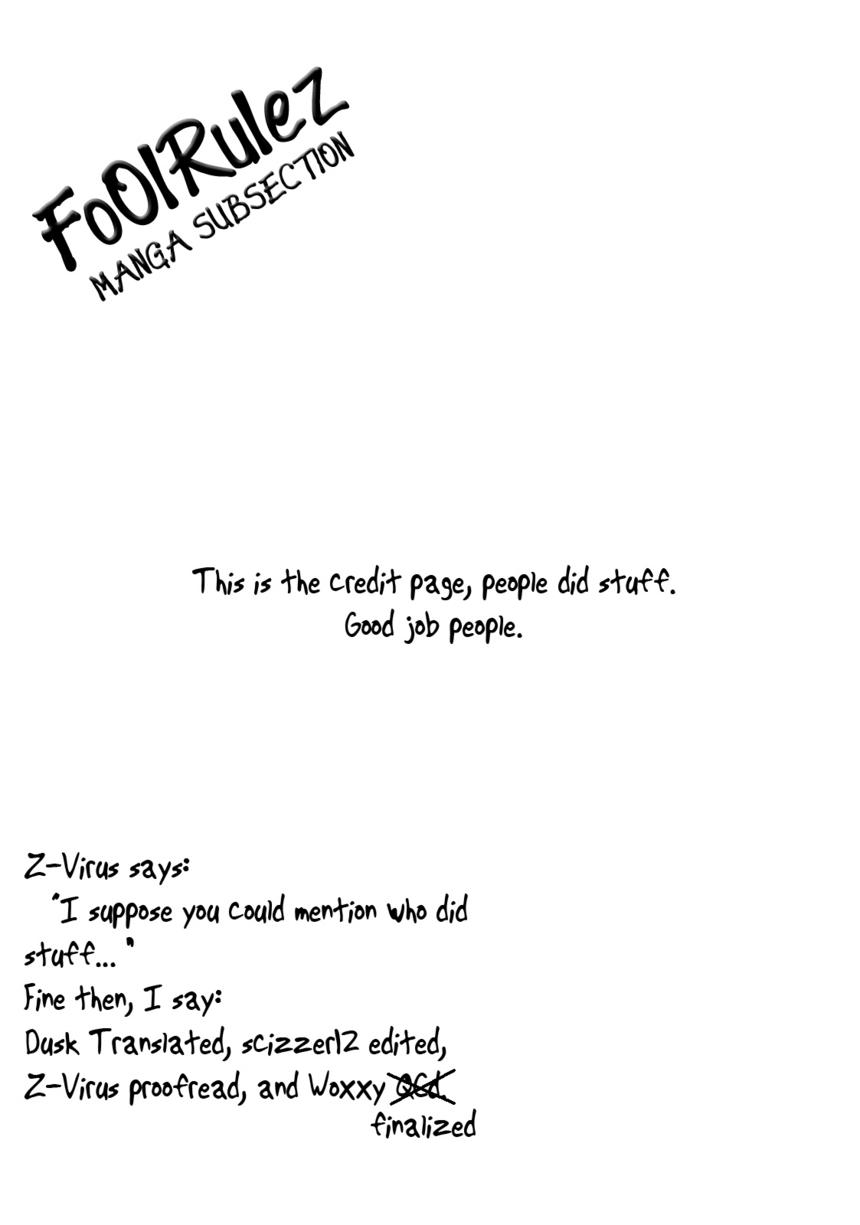 FoOlRulez
MANGA SUBSECTION
This is the credit page, people did stuff.
Good job people.
Z-Virus says:
"I suppose you could mention who did
stuff... "
Fine then, I say:
Dusk Translated, scizzer12 edited,
Z-Virus proofread, and Woxxy QCd.
finalized